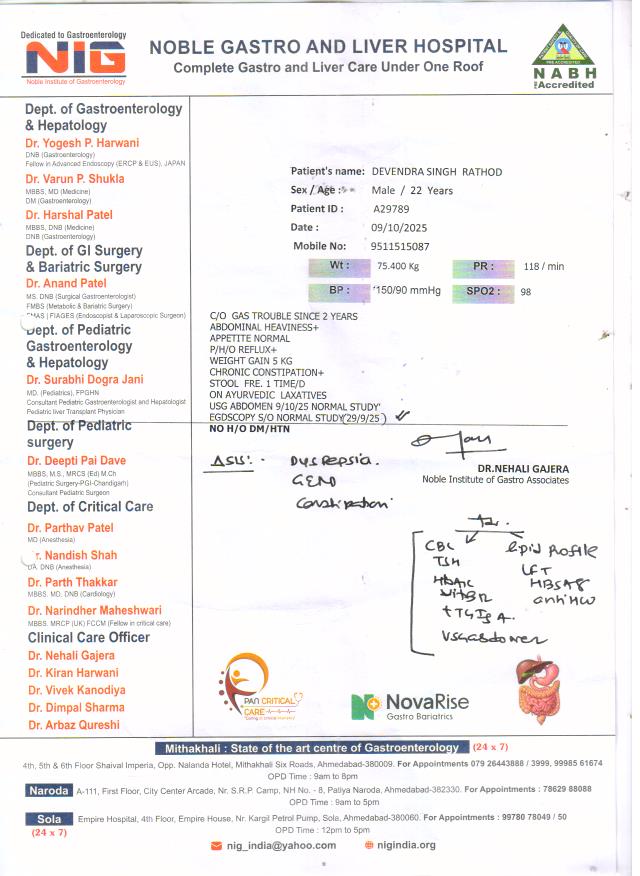 Dedicated to Gastroenterology
NIG
Noble Institute of Gastroenterology
NOBLE GASTRO AND LIVER HOSPITAL
Complete Gastro and Liver Care Under One Roof
NABH
PRE Accredited
Dept. of Gastroenterology
& Hepatology
Dr. Yogesh P. Harwani
DNB (Gastroenterology)
Fellow in Advanced Endoscopy (ERCP & EUS), JAPAN
Dr. Varun P. Shukla
MBBS, MD (Medicine)
DM (Gastroenterology)
Dr. Harshal Patel
MBBS, DNB (Medicine)
DNB (Gastroenterology)
Dept. of GI Surgery
& Bariatric Surgery
Dr. Anand Patel
MS. DNB (Surgical Gastroenterologist)
FMBS (Metabolic & Bariatric Surgery)
FMAS | FIAGES (Endoscopist & Laparoscopic Surgeon)
Dept. of Pediatric
Gastroenterology
& Hepatology
Dr. Surabhi Dogra Jani
MD. (Pediatrics), FPGHN
Consultant Pediatric Gastroenterologist and Hepatologist
Pediatric liver Transplant Physician
Dept. of Pediatric
surgery
Dr. Deepti Pai Dave
MBBS, M.S., MRCS (Ed) M.Ch
(Pediatric Surgery-PGI-Chandigarh)
Consultant Pediatric Surgeon
Dept. of Critical Care
Dr. Parthav Patel
MD (Anesthesia)
Dr. Nandish Shah
DA. DNB (Anesthesia)
Dr. Parth Thakkar
MBBS, MD, DNB (Cardiology)
Dr. Narindher Maheshwari
MBBS. MRCP (UK) FCCM (Fellow in critical care)
Clinical Care Officer
Dr. Nehali Gajera
Dr. Kiran Harwani
Dr. Vivek Kanodiya
Dr. Dimpal Sharma
Dr. Arbaz Qureshi
Patient's name: DEVENDRA SINGH RATHOD
Sex / Age : Male / 22 Years
Patient ID : A29789
Date : 09/10/2025
Mobile No: 9511515087
Wt : 75.400 Kg PR : 118 / min
BP : 150/90 mmHg SPO2 : 98
C/O GAS TROUBLE SINCE 2 YEARS
ABDOMINAL HEAVINESS+
APPETITE NORMAL
P/H/O REFLUX+
WEIGHT GAIN 5 KG
CHRONIC CONSTIPATION+
STOOL FRE. 1 TIME/D
ON AYURVEDIC LAXATIVES
USG ABDOMEN 9/10/25 NORMAL STUDY
EGDSCOPY S/O NORMAL STUDY(29/9/25) ✓
NO H/O DM/HTN
DR.NEHALI GAJERA
Noble Institute of Gastro Associates
Dyspepsia.
GERD
Constipation
CBC lipid Profile
TSH LFT
HbA1C HBSAg
Vit B12 anti HCV
tTG IgA.
USG abdomen
PAN CRITICAL
CARE
NovaRise
Gastro Bariatrics
Mithakhali : State of the art centre of Gastroenterology (24 x 7)
4th, 5th & 6th Floor Shaival Imperia, Opp. Nalanda Hotel, Mithakhali Six Roads, Ahmedabad-380009. For Appointments 079 26443888 / 3999, 99985 61674
OPD Time : 9am to 8pm
Naroda A-111, First Floor, City Center Arcade, Nr. S.R.P. Camp, NH No. - 8, Patiya Naroda, Ahmedabad-382330. For Appointments : 78629 88088
OPD Time : 9am to 5pm
Sola Empire Hospital, 4th Floor, Empire House, Nr. Kargil Petrol Pump, Sola, Ahmedabad-380060. For Appointments : 99780 78049 / 50
(24 x 7) OPD Time : 12pm to 5pm
nig_india@yahoo.com nigindia.org